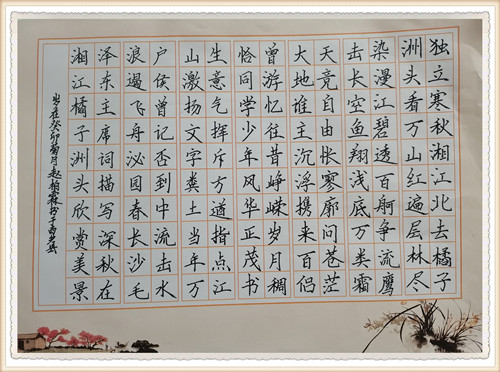 独立寒秋湘江北去橘子
洲头看万山红遍层林尽
染漫江碧透百舸争流鹰
击长空鱼翔浅底万类霜
天竞自由怅寥廓问苍茫
大地谁主沉浮携来百侣
曾游忆往昔峥嵘岁月稠
恰同学少年风华正茂书
生意气挥斥方遒指点江
山激扬文字粪土当年万
户侯曾记否到中流击水
浪遏飞舟泌园春长沙毛
泽东主席词描写深秋在
湘江橘子洲头欣赏美景
岁在癸卯菊月赵柏霖书于